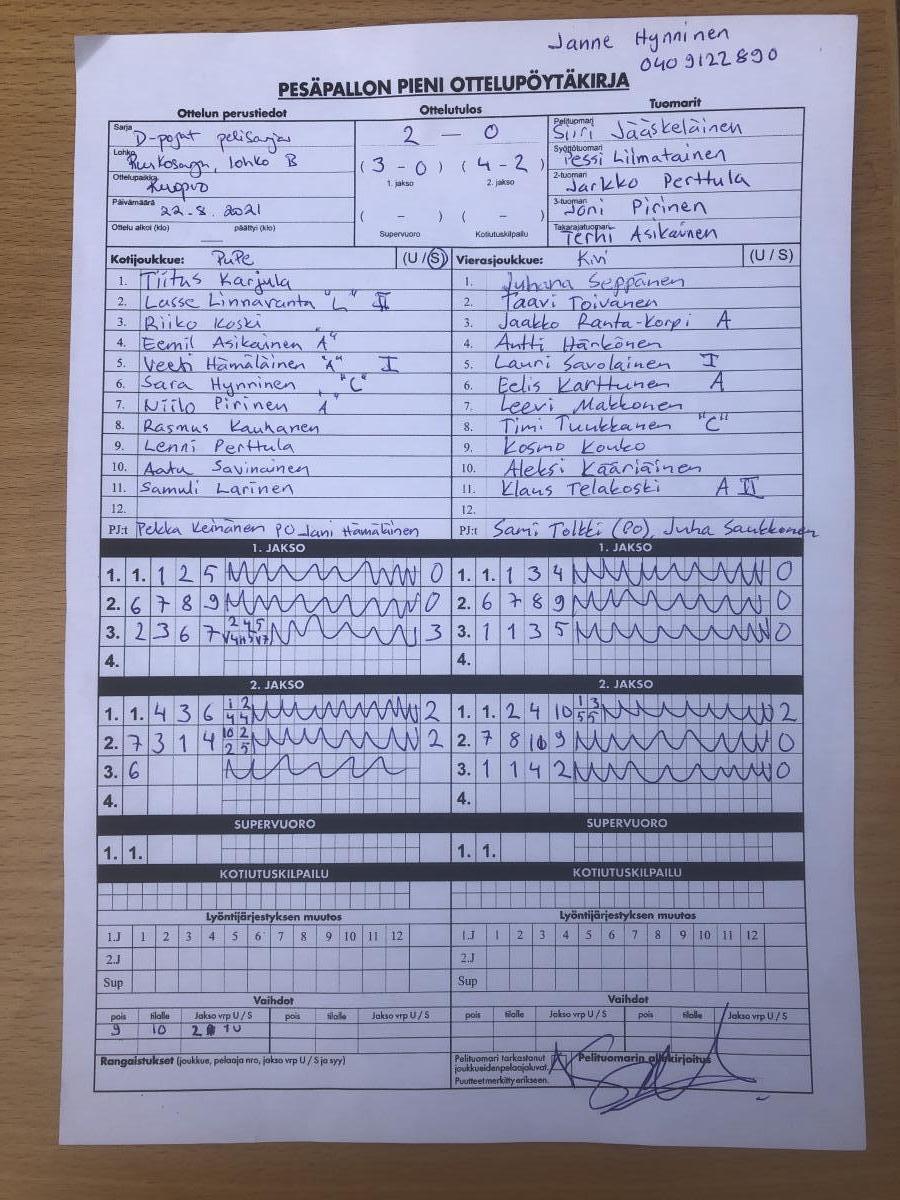 Janne Hynninen
040 9122890
PESÄPALLON PIENI OTTELUPÖYTÄKIRJA
Ottelun perustiedot Ottelutulos Tuomarit
Sarja D-pojat pelisarja
Lohko lohko B
Ottelupaikka Kuopio
Päivämäärä 22.8.2021
Ottelu alkoi (klo) päättyi (klo)
2 - 0
(3 - 0) (4 - 2)
1. jakso 2. jakso
( - ) ( - )
Supervuoro Kotiutuskilpailu
Pelituomari Siiri Jääskeläinen
Syöttötuomari Pessi Liimatainen
2-tuomari Jarkko Perttula
3-tuomari Joni Pirinen
Takarajatuomari Terhi Asikainen
Kotijoukkue: PuPe (U / S)
1. Tiitus Karjula
2. Lasse Linnaranta "L" II
3. Riiko Koski
4. Eemil Asikainen "A"
5. Veeti Hämäläinen "A" I
6. Sara Hynninen "C"
7. Niilo Pirinen "A"
8. Rasmus Kauhanen
9. Lenni Perttula
10. Aatu Savinainen
11. Samuli Larinen
12.
PJ:t Pekka Keinänen PO Jani Hämäläinen
Vierasjoukkue: Kiri (U / S)
1. Juhana Seppänen
2. Taavi Toivanen
3. Jaakko Ranta-Korpi A
4. Antti Härkönen
5. Lauri Savolainen I
6. Eelis Karttunen A
7. Leevi Makkonen
8. Timi Tuukkanen "C"
9. Kosmo Kouko
10. Aleksi Kääriäinen
11. Klaus Telakoski A II
12.
PJ:t Sami Toltki (PO), Juha Saukkonen
1. JAKSO 1. JAKSO
1. 1. 1 2 5 0 1. 1. 1 3 4 0
2. 6 7 8 9 0 2. 6 7 8 9 0
3. 2 3 6 7 3 3. 1 1 3 5 0
4. 4.
2. JAKSO 2. JAKSO
1. 1. 4 3 6 1 2 4 4 2 1. 1. 2 4 10 1 3 5 5 2
2. 7 3 1 4 10 2 2 5 2 2. 7 8 10 9 0
3. 6 3. 1 1 4 2 0
4. 4.
SUPERVUORO SUPERVUORO
1. 1. 1. 1.
KOTIUTUSKILPAILU KOTIUTUSKILPAILU
Lyöntijärjestyksen muutos Lyöntijärjestyksen muutos
1.J 1 2 3 4 5 6 7 8 9 10 11 12 1.J 1 2 3 4 5 6 7 8 9 10 11 12
2.J 2.J
Sup Sup
Vaihdot Vaihdot
pois tilalle Jakso vrp U / S pois tilalle Jakso vrp U / S pois tilalle Jakso vrp U / S pois tilalle Jakso vrp U / S
9 10
Rangaistukset (joukkue, pelaaja nro, jakso vrp U / S ja syy)
Pelituomari tarkastanut
joukkueiden pelaajaluvat.
Puutteet merkitty erikseen.
Pelituomarin allekirjoitus